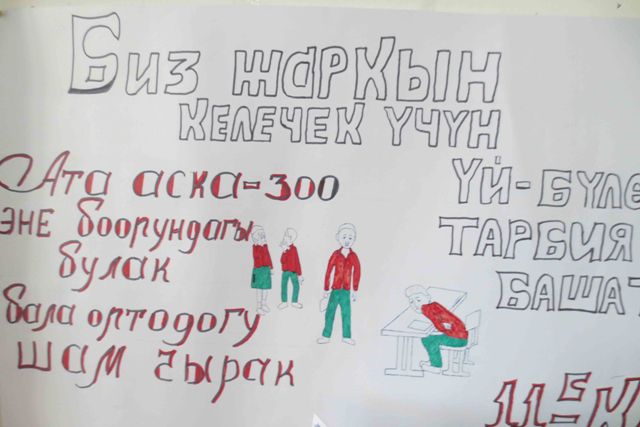 Биз жаркын
келечек үчүн
Ата аска-зоо
эне боорундагы
булак
бала ортодогу
шам чырак
Үй-бүле
тарбия